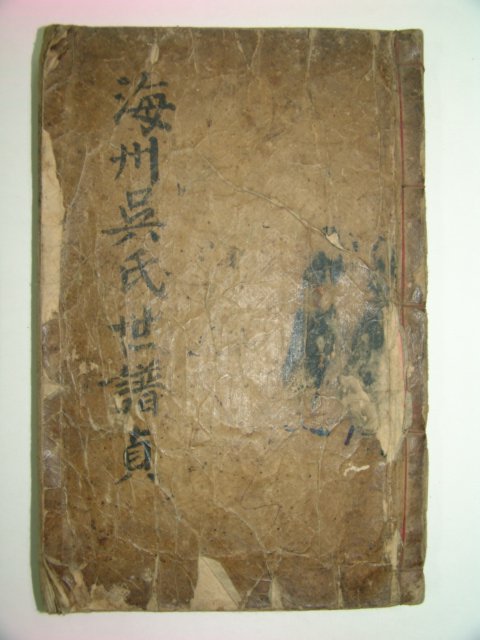 海州吳氏世譜貞